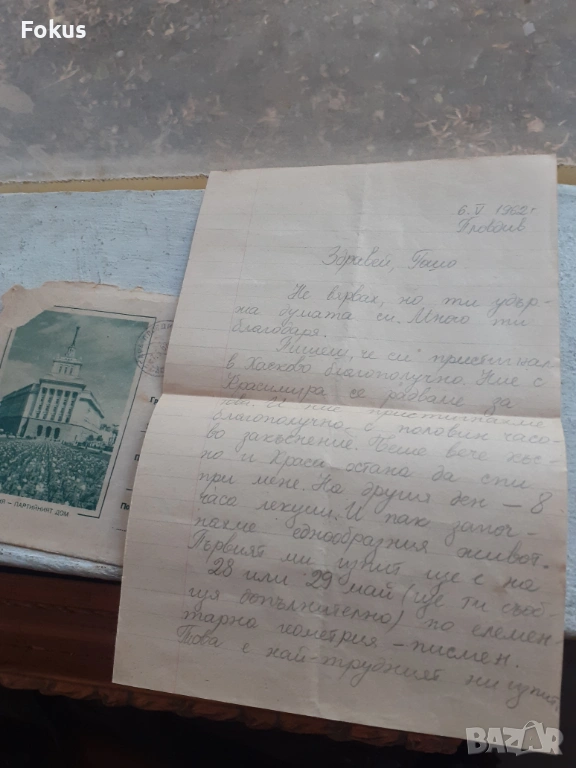 Fokus
6. V 1962 г.
Пловдив
Здравей,
Не вярвах, но ти удър-
жа думата си. Много ти
благодаря.
Пишеш, че си пристигнал
в Хасково благополучно. Ние с
Красимира се радваме за
това. И ние пристигнахме
благополучно с половин часо-
во закъснение. Беше вече къс-
но и Краса остана да спи
при мене. На другия ден – 8
часа лекции. И пак започ-
нахме еднообразния живот.
Първият ми изпит ще е на
28 или 29 май (ще ти съоб-
щя допълнително) по елемен-
тарна геометрия – писмен.
Това е най-трудният ни изпит,
– ПАРТИЙНИЯТ ДОМ
BAZAR